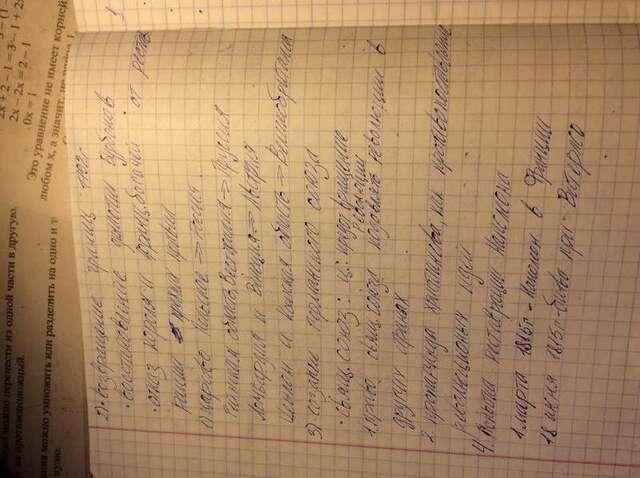 можно перенести из одной части в другую,
на противоположный.
можно умножить или разделить на одно и т
нулю.
2x + 2 − 1 = 3 − 1 + 2x
2x − 2x = 2 − 1
0x = 1
Это уравнение не имеет корней,
любом x, а значит, не равна 1.
2) • возвращение границ 1792г
• восстановление династии Бурбонов
• отказ короля и франц. богачей от рестав
рации прежн правил
1) царство Польское ⇒ Россия.
Рейнская область Вестфалия ⇒ Пруссия
Ломбардия и Венеция ⇒ Австрия
Цейлон и Капская область ⇒ Великобритания
3) создание Германского союза
• свящ. союз: ц: предотвращение
революции
1. право свящ. союза подавлять революции в
других странах
2. пропаганда христианства, как противопоставление
революционых идей
4. Попытка реставрации Наполеона
1 марта 1815г - Наполеон в Франции
18 июня 1815г - битва при Ватерлоо
1